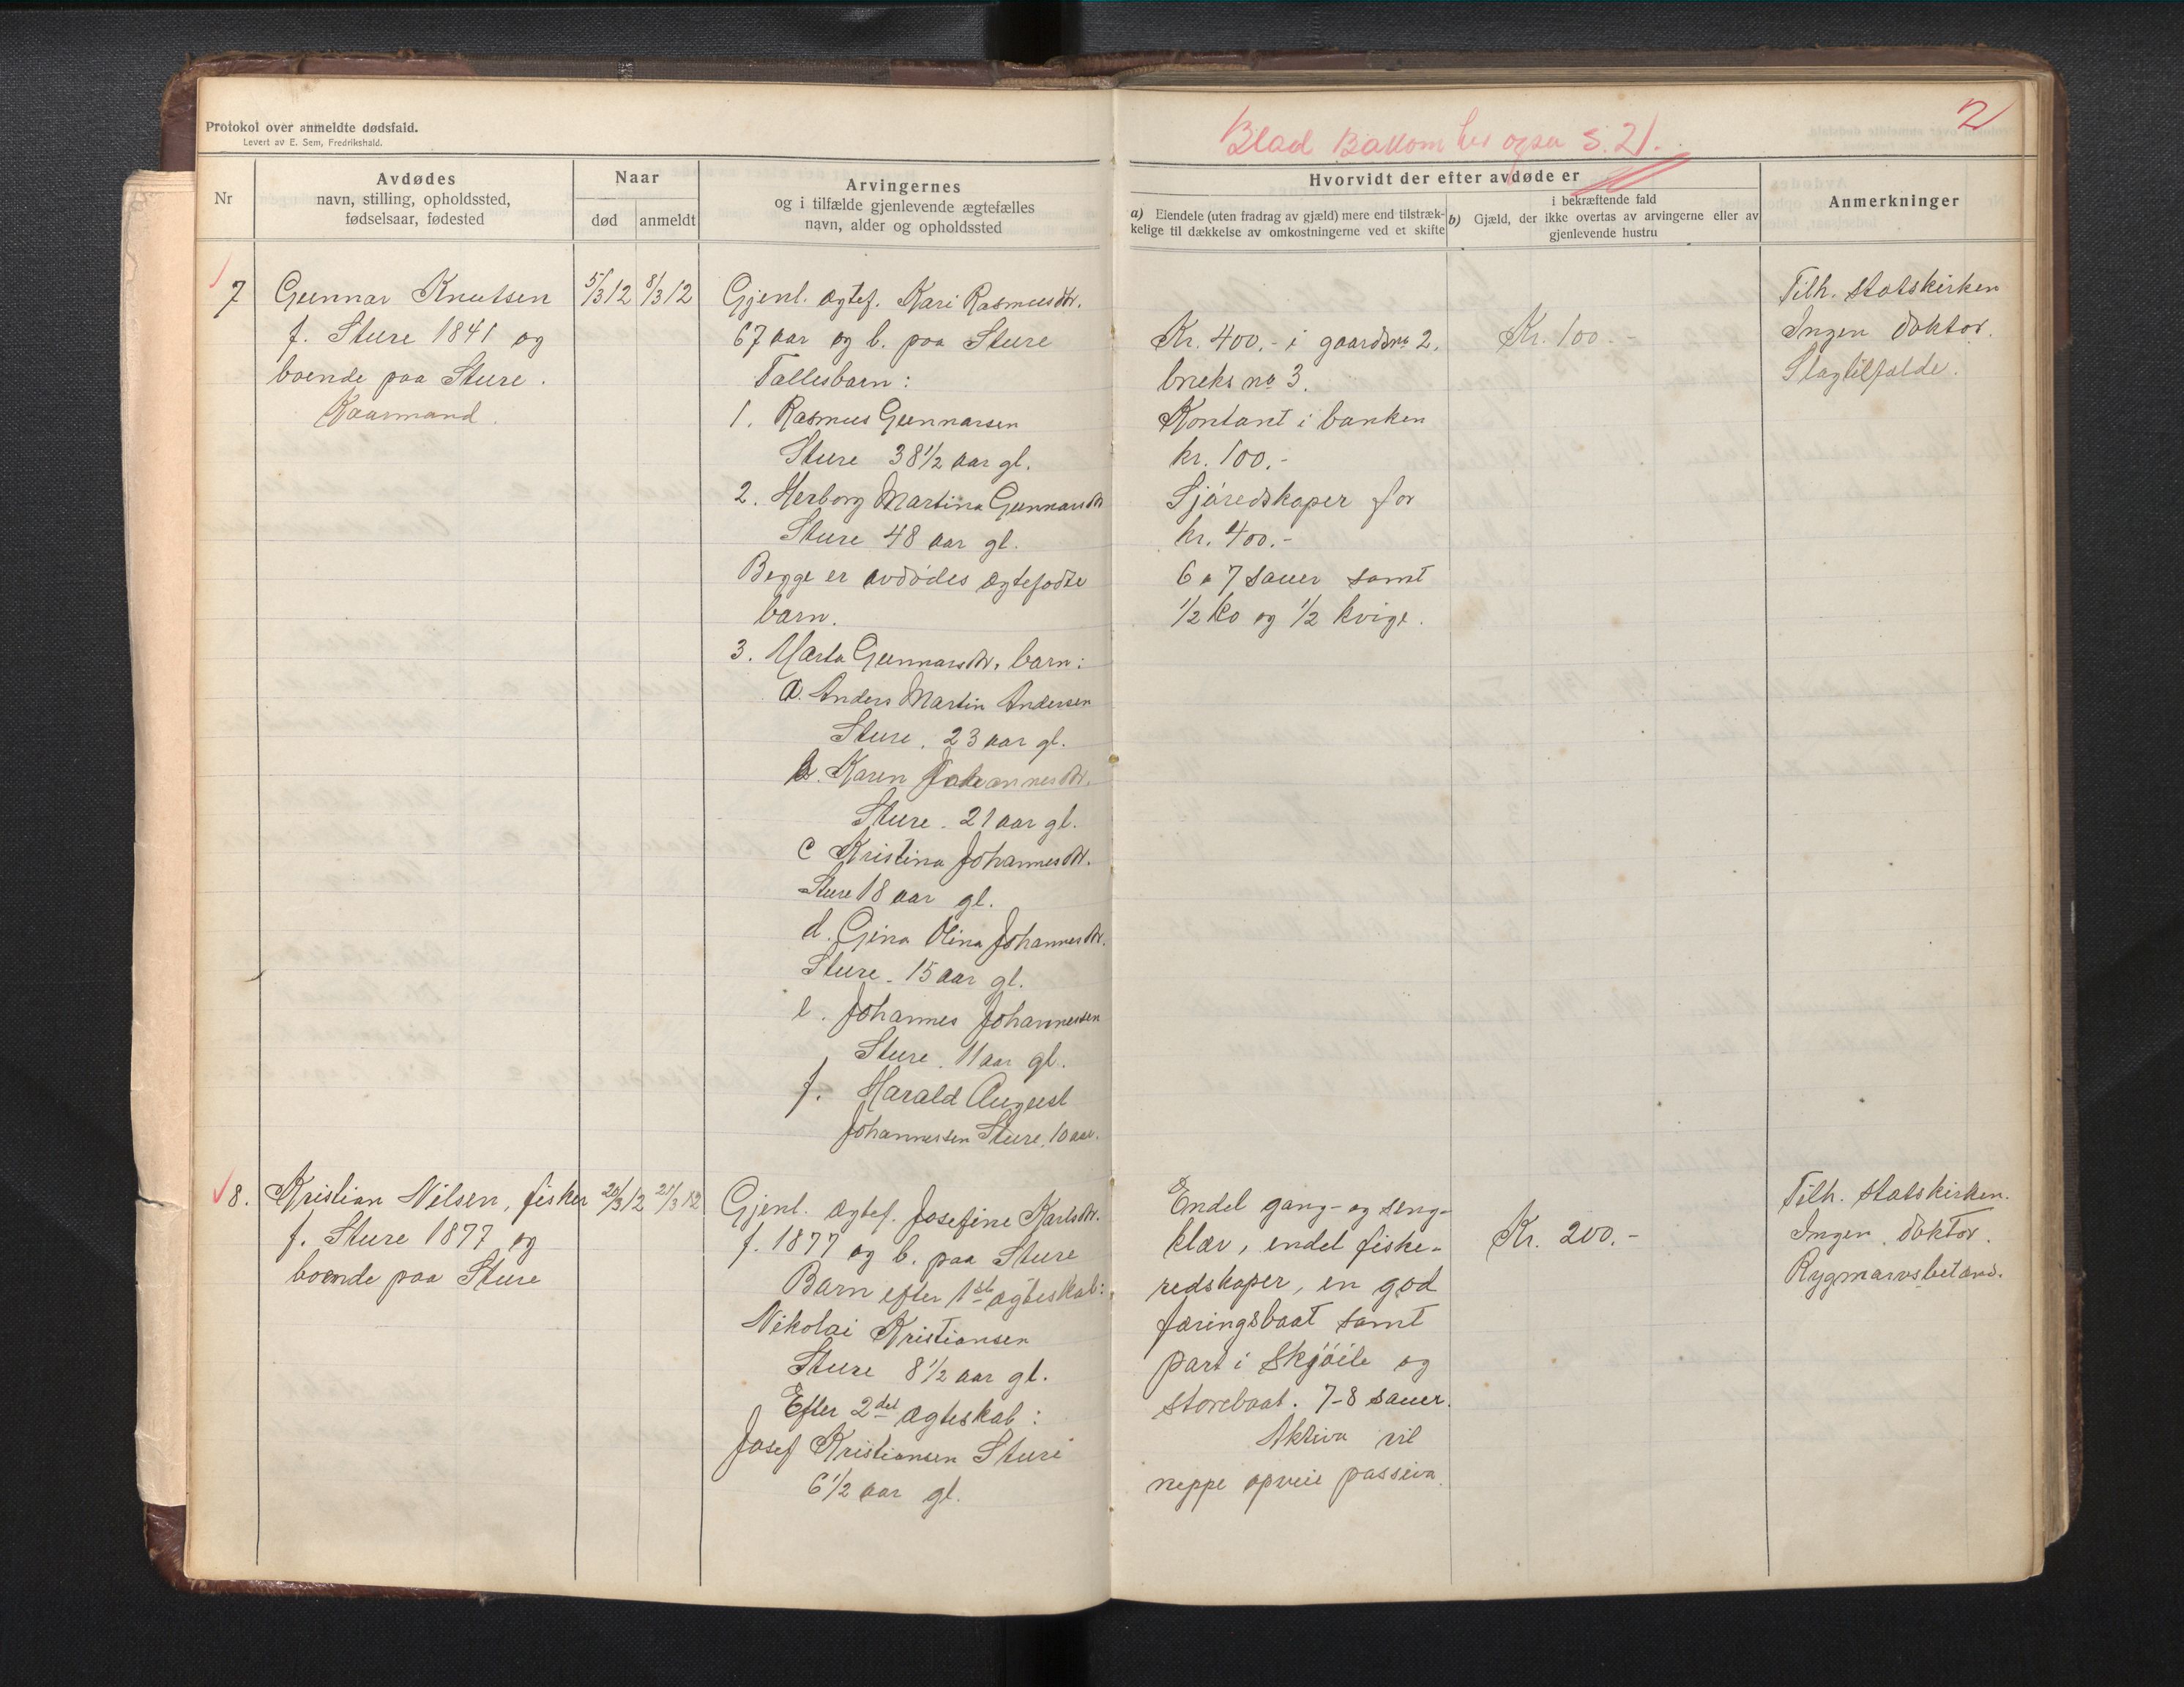 Protokol over anmeldte dødsfald.
Levert av E. Sem, Fredrikshald.
Nr
Avdødes
navn, stilling, opholdssted,
fødselsaar, fødested
Naar
død
anmeldt
Arvingernes
og i tilfælde gjenlevende ægtefælles
navn, alder og opholdssted
7
Gunnar Knutsen
f. Sture 1841 og
boende paa Sture.
Kaarmand.
5/3 12
8/3 12
Gjenl. ægtef. Kari Rasmusdtr.
67 aar og b. paa Sture
Fællesbarn:
1. Rasmus Gunnarsen
Sture 38 1/2 aar gl.
2. Herborg Martina Gunnarsdtr
Sture 48 aar gl.
Begge er avdødes ægtefødte
barn.
3. Marta Gunnarsdtr. barn:
a. Anders Martin Andersen
Sture. 23 aar gl.
b. Karen Johannesdtr.
Sture. 21 aar gl.
c Kristina Johannesdtr.
Sture 18 aar gl.
d. Gina Olina Johannesdtr.
Sture. 15 aar gl.
e. Johannes Johannessen
Sture. 11 aar gl.
f. Harald August
Johannessen Sture, 10 aar.
8.
Kristian Nilsen, fisker
f. Sture 1877 og
boende paa Sture
20/3 12
21/3 12
Gjenl. ægtef. Josefine Karlsdtr.
f. 1877 og b. paa Sture
Barn efter 1ste ægteskab:
Nikolai Kristiansen
Sture 8 1/2 aar gl.
Efter 2det ægteskab:
Josef Kristiansen Sture
6 1/2 aar gl.
2
Blad Bakom her også S. 21.
Hvorvidt der efter avdøde er
a) Eiendele (uten fradrag av gjæld) mere end tilstræk-
kelige til dækkelse av omkostningerne ved et skifte
i bekræftende fald
b) Gjæld, der ikke overtas av arvingerne eller av
gjenlevende hustru
Anmerkninger
Kr. 400.- i gaardsno 2.
bruks no 3.
Kontant i banken
kr. 100.-
Sjøredskaper for
kr. 400.-
6 a 7 sauer samt
1/2 ko og 1/2 kvige.
Kr. 100.-
Tilh. statskirken
Ingen doktor.
Slagtilfælde.
Endel gang- og seng-
klær, endel fiske-
redskaper, en god
færingsbaat samt
part i skjøite og
storebaat. 7-8 sauer.
Aktiva vil
neppe opveie passiva.
Kr. 200.-
Tilh. statskirken.
Ingen doktor.
Rygmarvsbetænd.